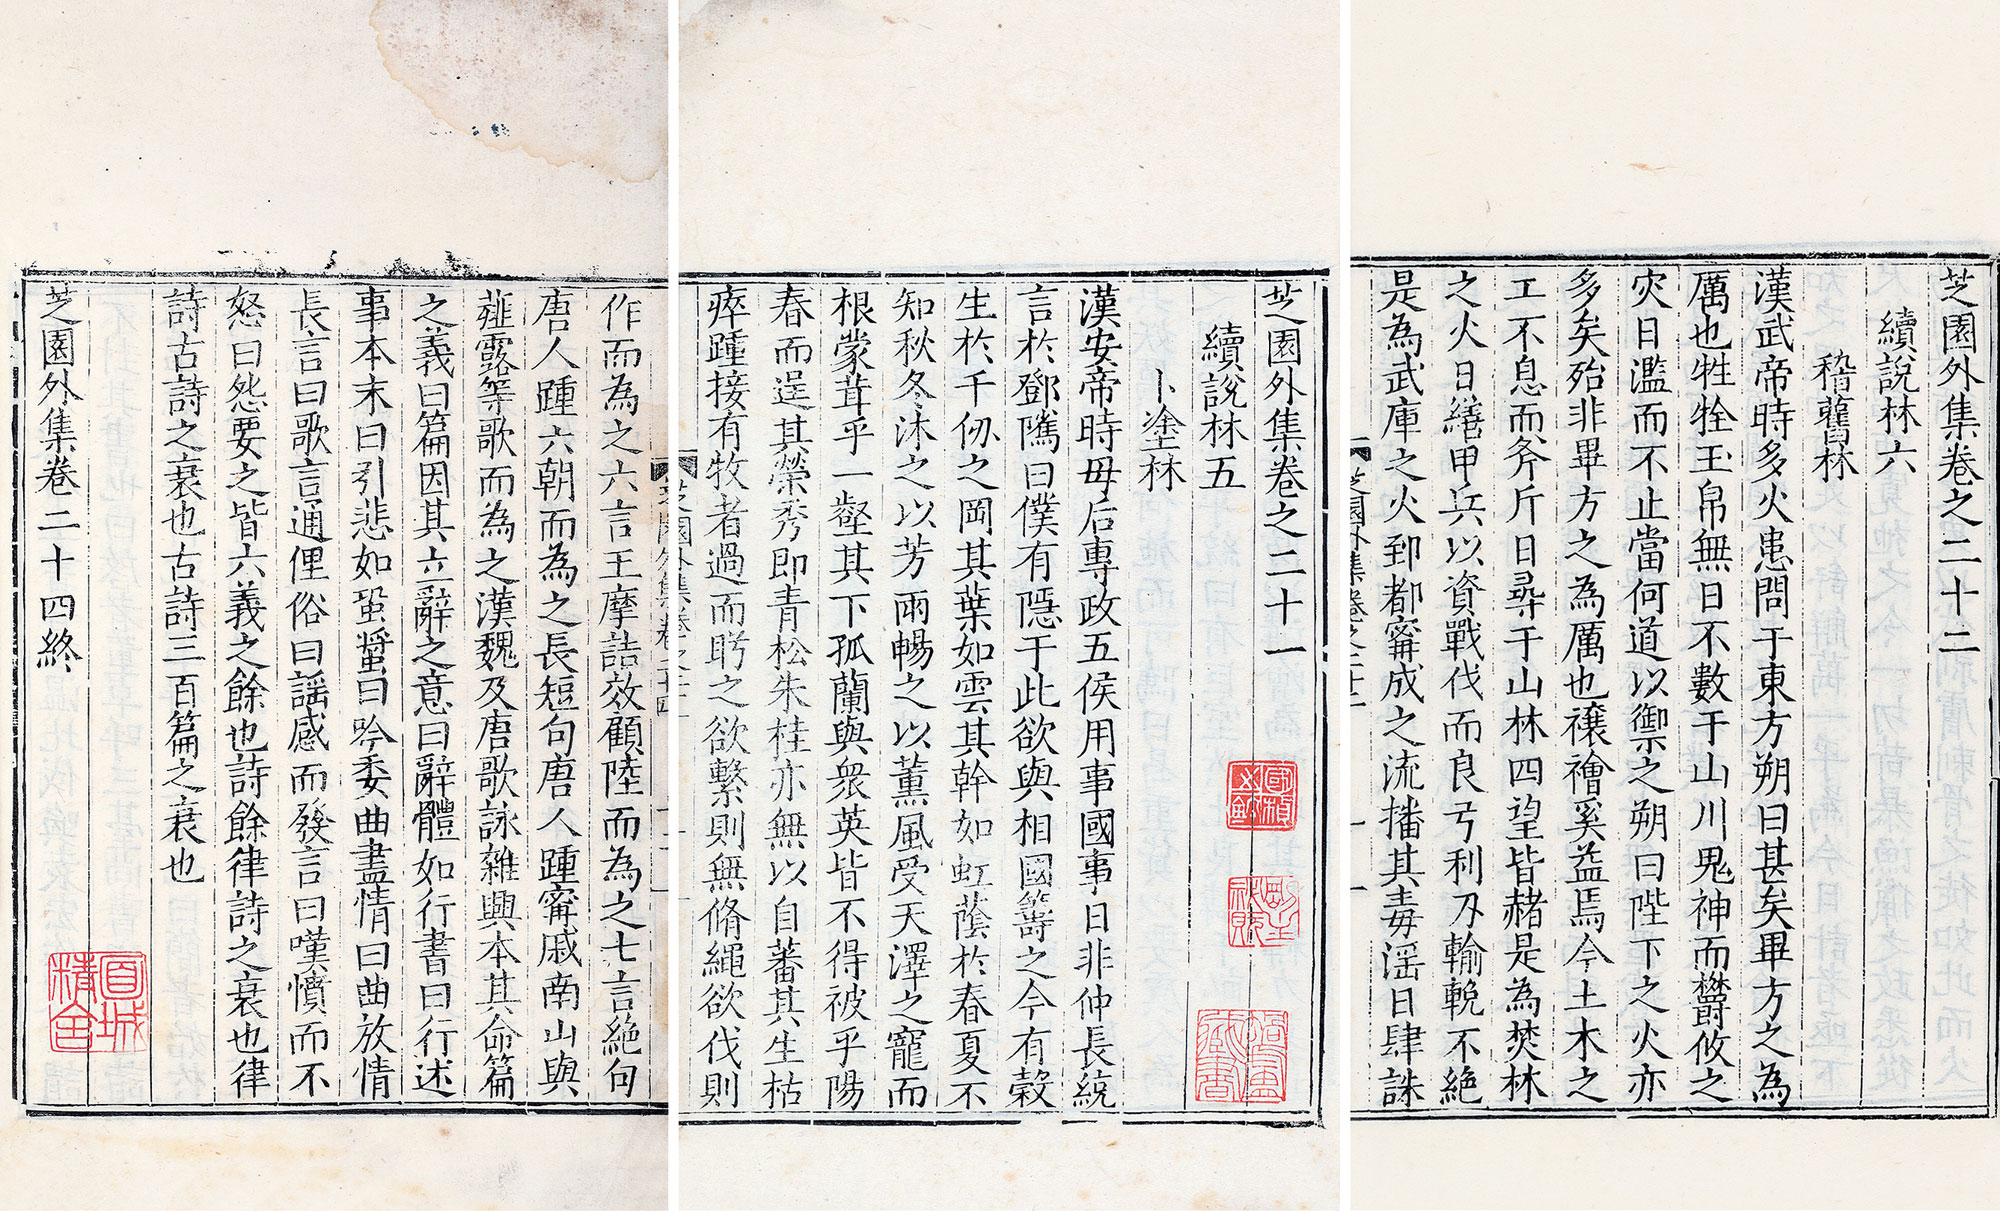 芝園外集卷之二十二
續說林六
稽舊林
漢武帝時多火患問于東方朔曰甚矣畢方之為
厲也牲牷玉帛無日不數于山川鬼神而欝攸之
灾日濫而不止當何道以禦之朔曰陛下之火亦
多矣殆非畢方之為厲也禳禬奚益焉今土木之
工不息而斧斤日尋于山林四望皆赭是為焚林
之火日繕甲兵以資戰伐而良弓利刃輸輓不絶
是為武庫之火郅都甯成之流播其毒淫日肆誅
芝園外集卷之二十二
芝園外集卷之二十一
續說林五
卜塗林
漢安帝時毋后專政五侯用事國事日非仲長統
言於鄧隲曰僕有隱于此欲與相國籌之今有榖
生於千仞之岡其葉如雲其幹如虹蔭於春夏不
知秋冬沐之以芳雨暢之以薰風受天澤之寵而
根蒙茸乎一壑其下孤蘭與衆英皆不得被乎陽
春而逞其榮秀即青松朱桂亦無以自蕃其生枯
瘁踵接有牧者過而眄之欲繫則無脩繩欲伐則
芝園外集卷之二十四
作而為之六言王摩詰效顧陸而為之七言絶句
唐人踵六朝而為之長短句唐人踵甯戚南山與
薤露等歌而為之漢魏及唐歌詠雜興本其命篇
之義曰篇因其立辭之意曰辭體如行書曰行述
事本末曰引悲如蛩螿曰吟委曲盡情曰曲放情
長言曰歌言通俚俗曰謡感而發言曰嘆憤而不
怒曰怨要之皆六義之餘也詩餘律詩之衰也律
詩古詩之衰也古詩三百篇之衰也
芝園外集卷二十四終
百城
精舍